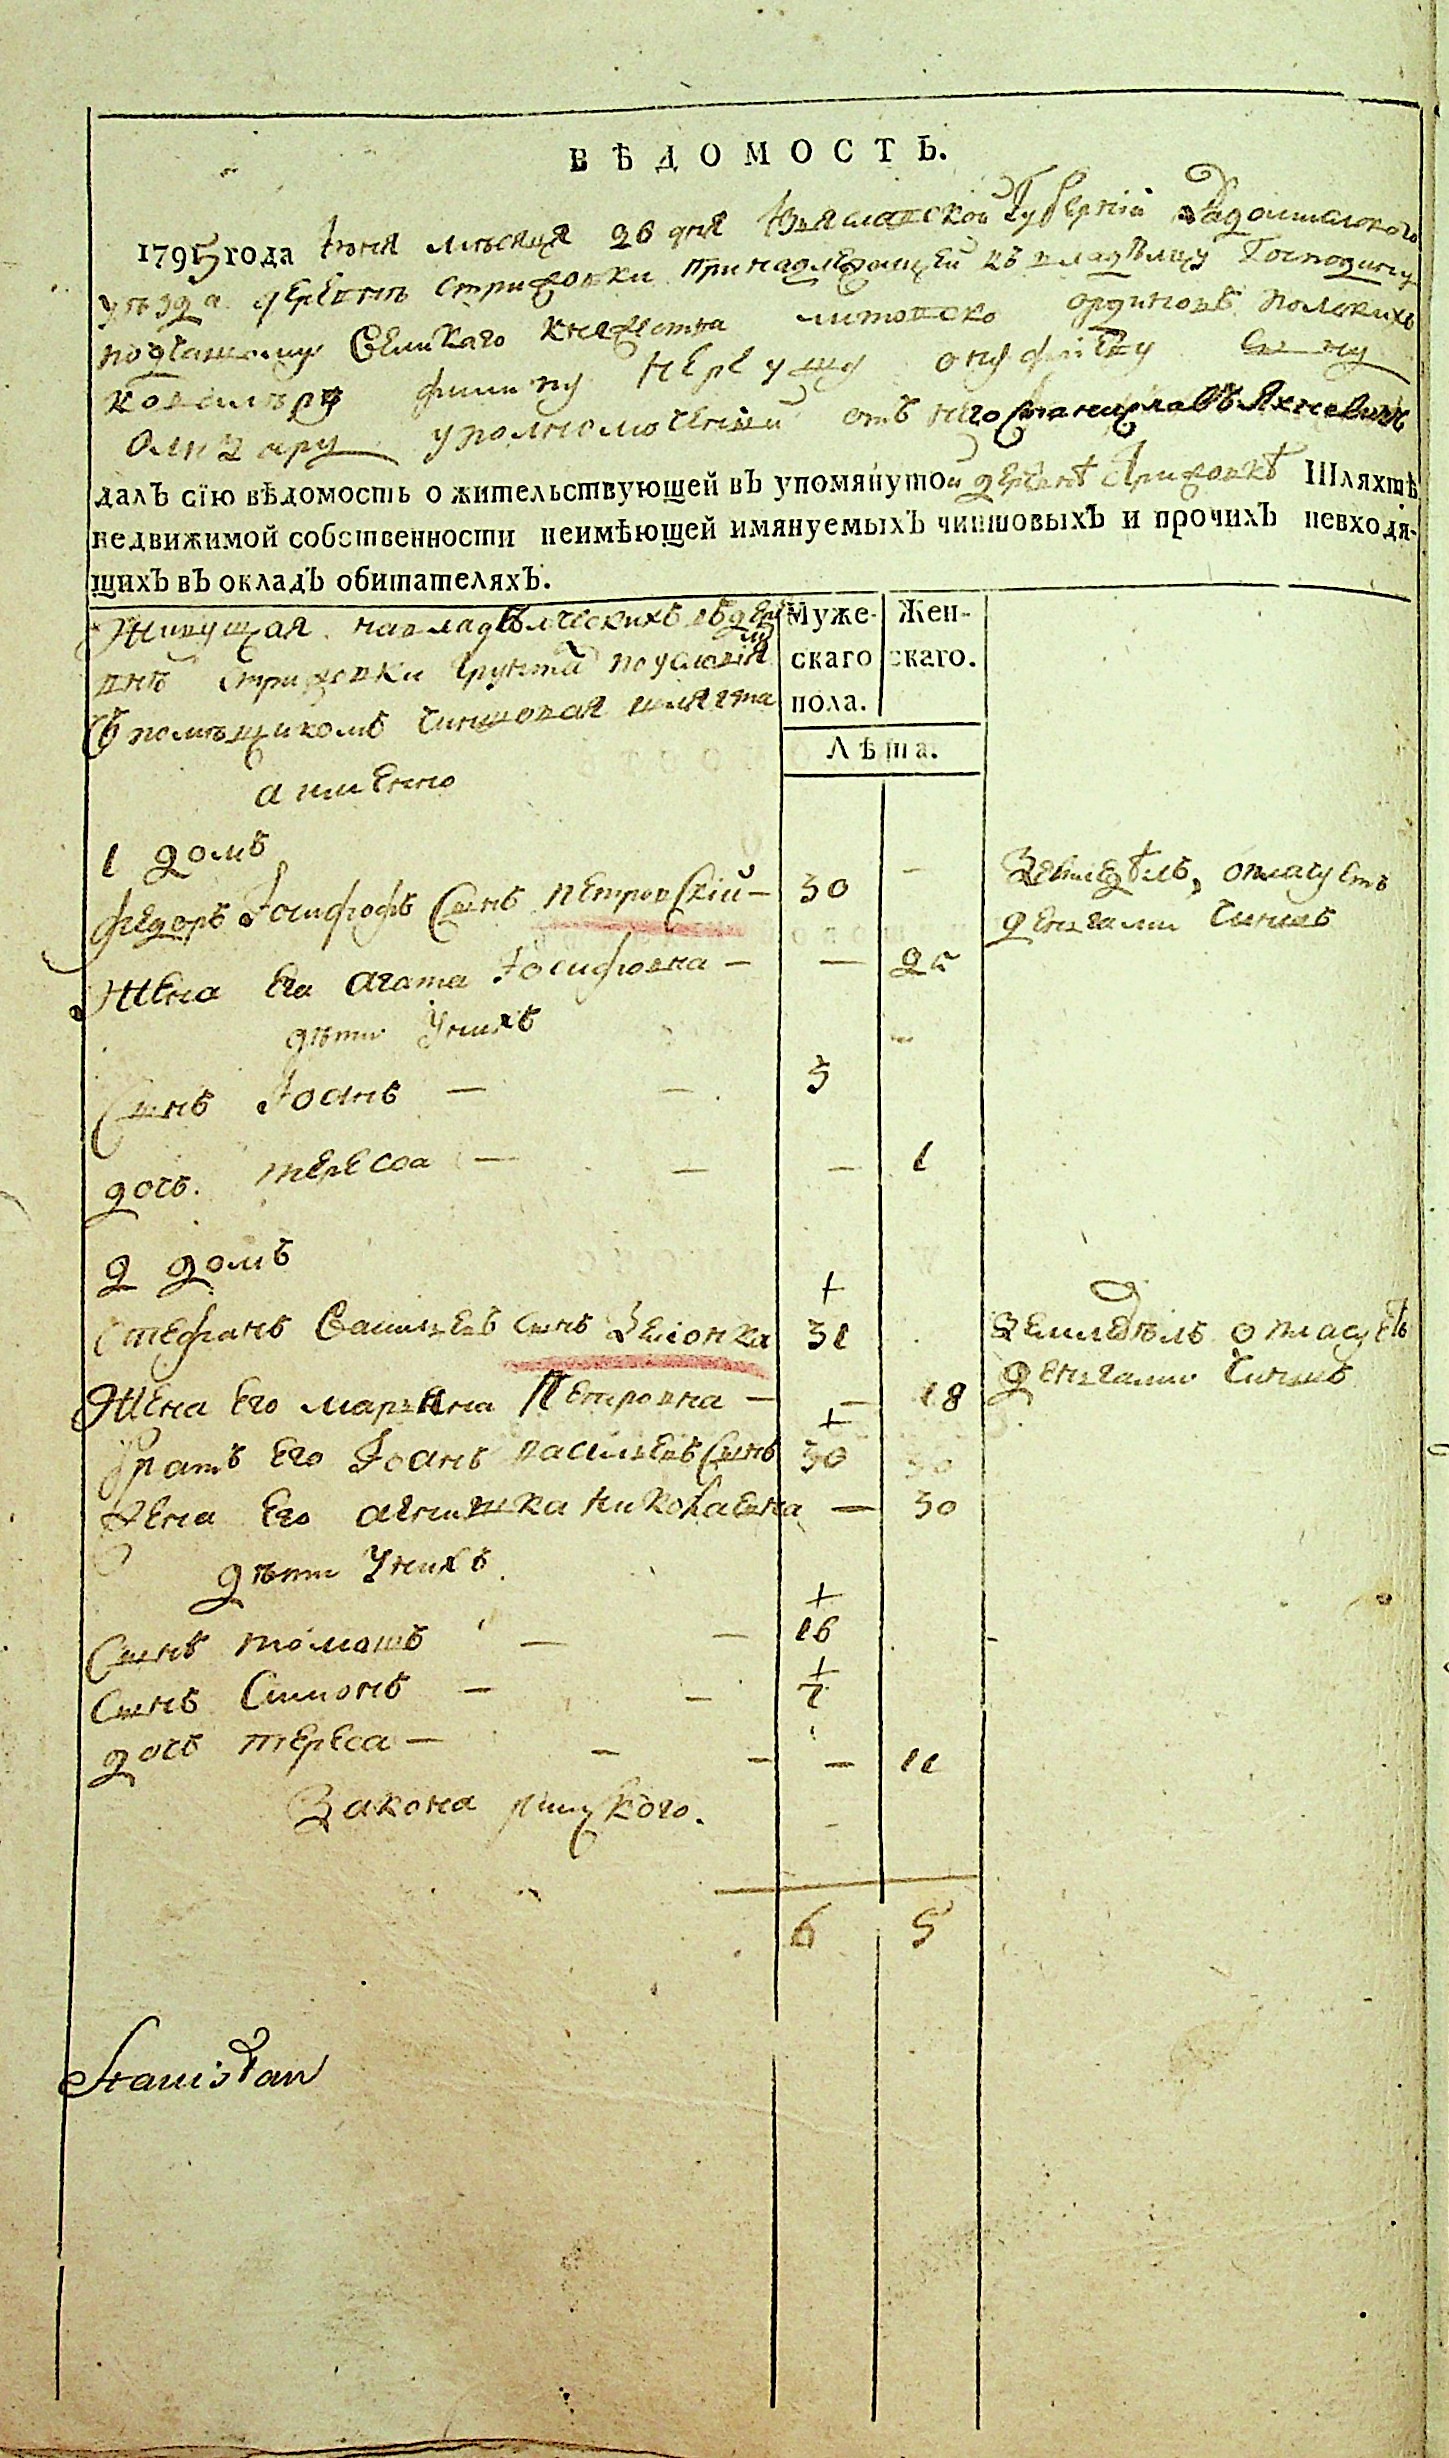 ВѢДОМОСТЬ.
1795 года Іюня мѣсяца 26 дня Изяславской Губерніи Радомышлского
уѣзда деревнѣ Стрижовки принадлежащей къ владѣлцу Господину
подчашому Великаго княжества литовско ординовъ полскихъ
ковалѣру филипу Нерею онуфріеву сыну
Олизару уполномоченній отъ него Станиславъ Яхневичь
далъ сію вѣдомость о жительствующей въ упомянутой деревнѣ Стрижовкѣ Шляхтѣ
недвижимой собственности неимѣющей имянуемыхъ чиншовыхъ и прочихъ невходя-
щихъ въ окладъ обитателяхъ.
Живущая на владѣлческихъ въ дерѣ Муже- Жен-
внѣ Стрижовки грунта по условія скаго скаго.
Съ помѣщикомъ чиншовая шляхта пола.
Лѣта.
а имѣнно
1 домъ
федоръ Іосифофъ Сынъ Петровскій — 30 — Земледѣлъ, оплачуетъ
денгами чиншъ
Жена Его агата Іосифовна — — 25
дѣти У нихъ
Сынъ Іоанъ — — 5
дочь Тереса — — — 1
2 домъ
Стефанъ Васильевъ сынъ Зелонка 31 Земледѣлъ оплачуетъ
Жена Его марьяна Петровна — — 18 денгами чиншъ
Братъ Его Іоанъ васильевъ Сынъ 30
Жена Его агнишка николаевна — 30
дѣти У нихъ
Сынъ томашъ — — 16
Сынъ Симонъ — — 7
дочь тереса — — — — 11
Закона римского.
6 5
Stanisław